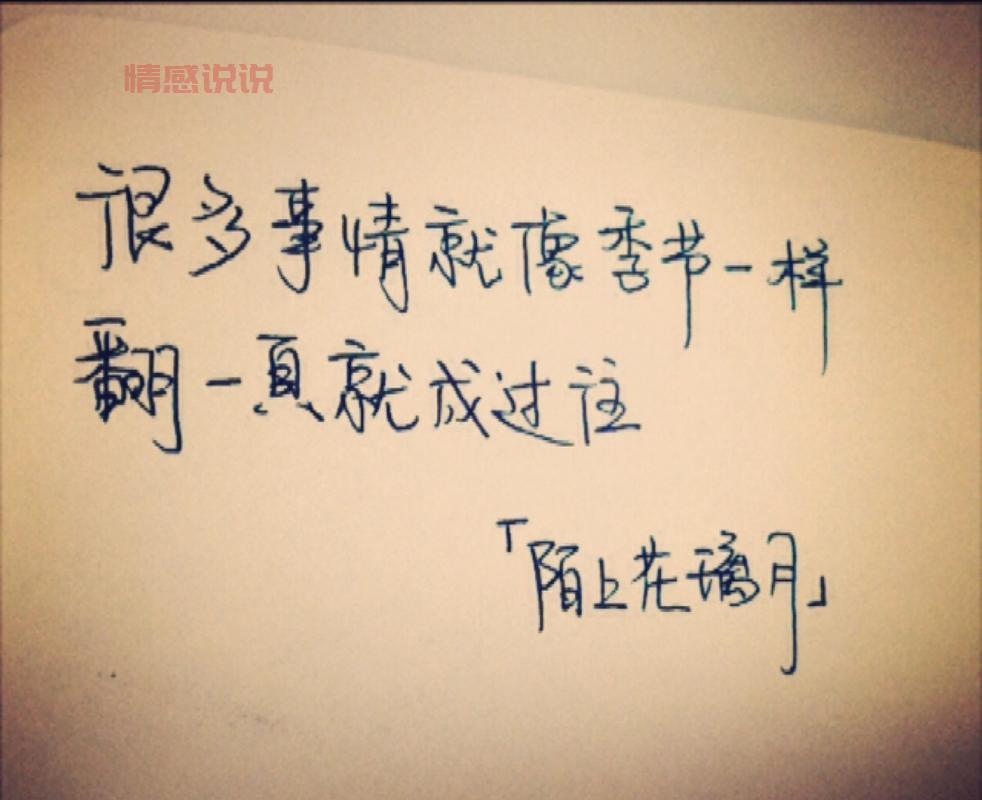 情感说说
很多事情就像季节一样
翻一頁就成过往
「陌上花璃月」